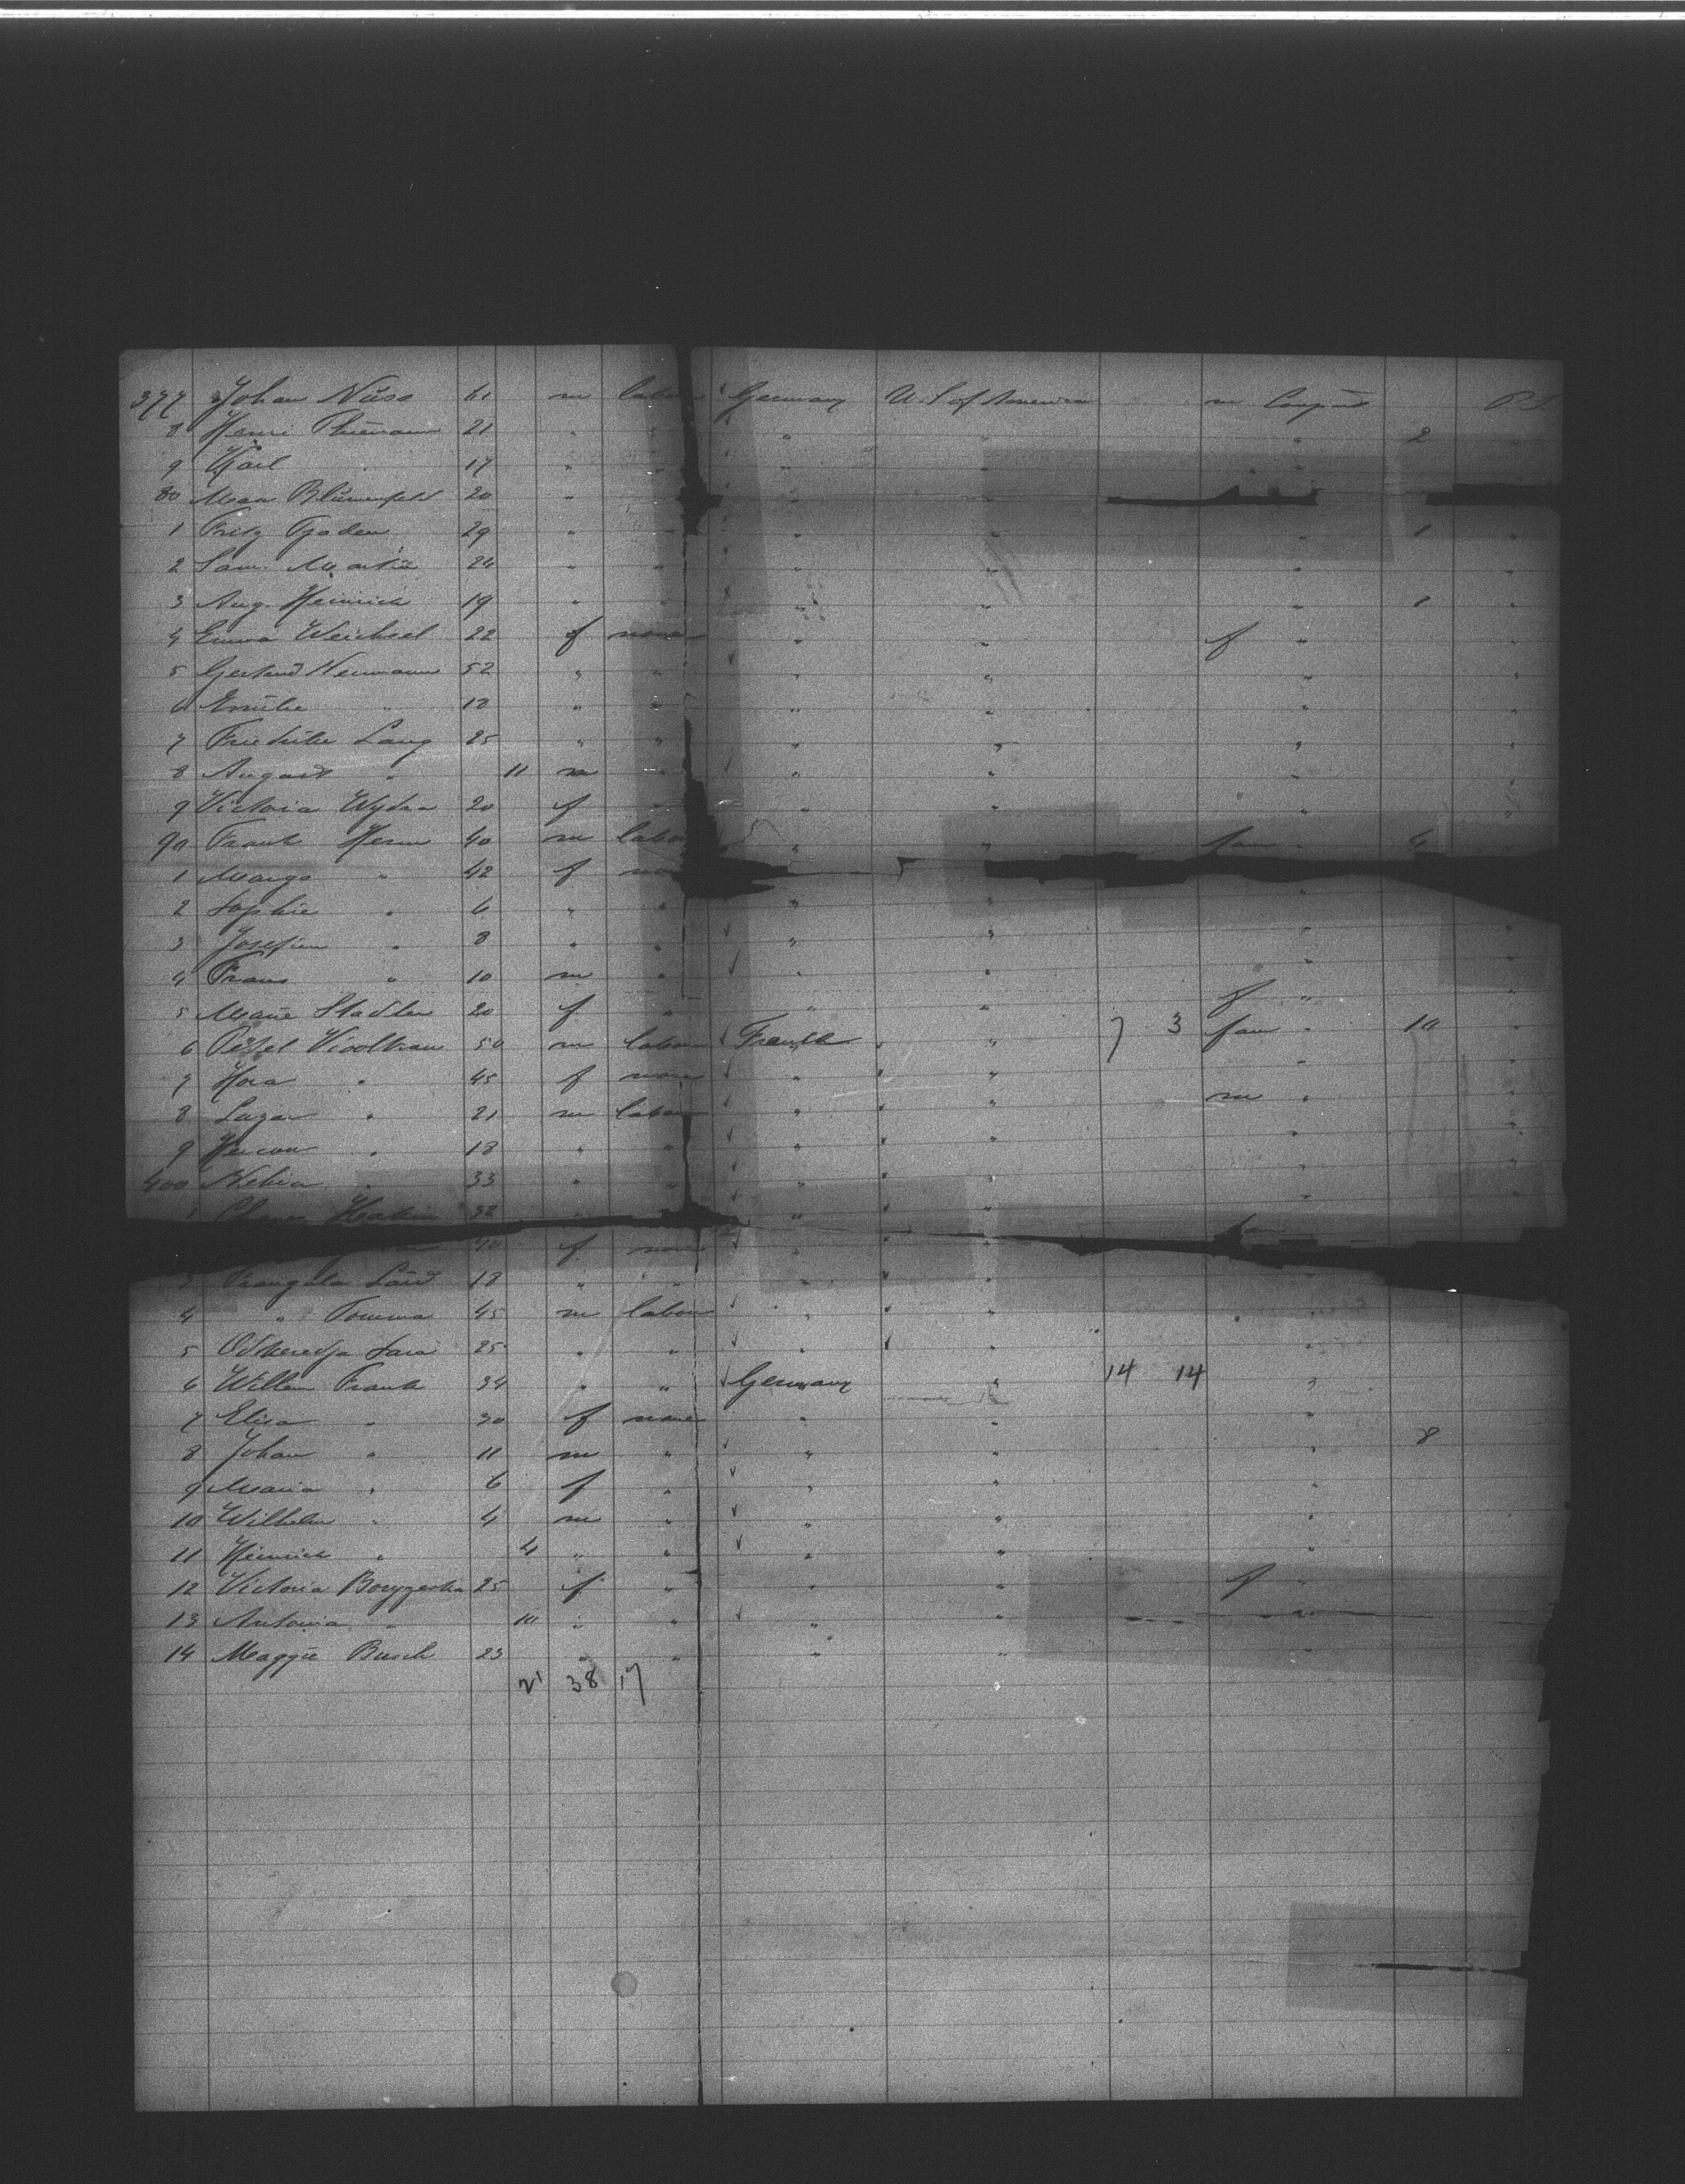 377 Johan Nüss 61 m labour Germany U.S. of America m Compnt P.S.
8 Henri Thiemann 21 " " " " " 2
9 Karl " 17 " " " " "
80 Max Blümenfeld 20 " " "
1 Fritz Tjaden 29 " " " " 1 "
2 Sam. Martin 24 " " " " " "
3 Aug. Heinrich 19 " " " " " 1 "
4 Emma Weichsel 22 f none " " f "
5 Gertrud Neumann 52 " " " " " "
6 Emilie " 18 " " " " " "
7 Friedrike Lang 25 " " " " " "
8 August " 11 m " " " " "
9 Victoria Wydra 20 f " " " " "
90 Frank Herm 40 m labou " " fam " 4 "
1 " 42 f no
2 Sophie " 6 " " " " "
3 Josefine " 8 " " " " " "
4 Frans " 10 m " " " " "
5 Marie Stadler 20 f " " " f " "
6 50 m labour French " 7 3 fam " 10 "
7 " 45 f none " " " "
8 Lazar " 21 m labour " " m " "
9 " 18 " " " " " "
400 " 33 " " " " " "
1 32 " " "
40 f none " "
3 18 " " " " "
4 " Tomma 45 m labour " " "
5 25 " " " " "
6 Willem Frank 34 " " Germany " 14 14 "
7 Elisa " 30 f none " " "
8 Johan " 11 m " " " " 8
9 Maria " 6 f " " " "
10 Wilhelm " 4 m " " " "
11 Heinrich " 4 " " " " "
12 Victoria 25 f " " " f "
13 Antonia " 10 " " " " "
14 Maggie Busch 23 " " " " "
38 17